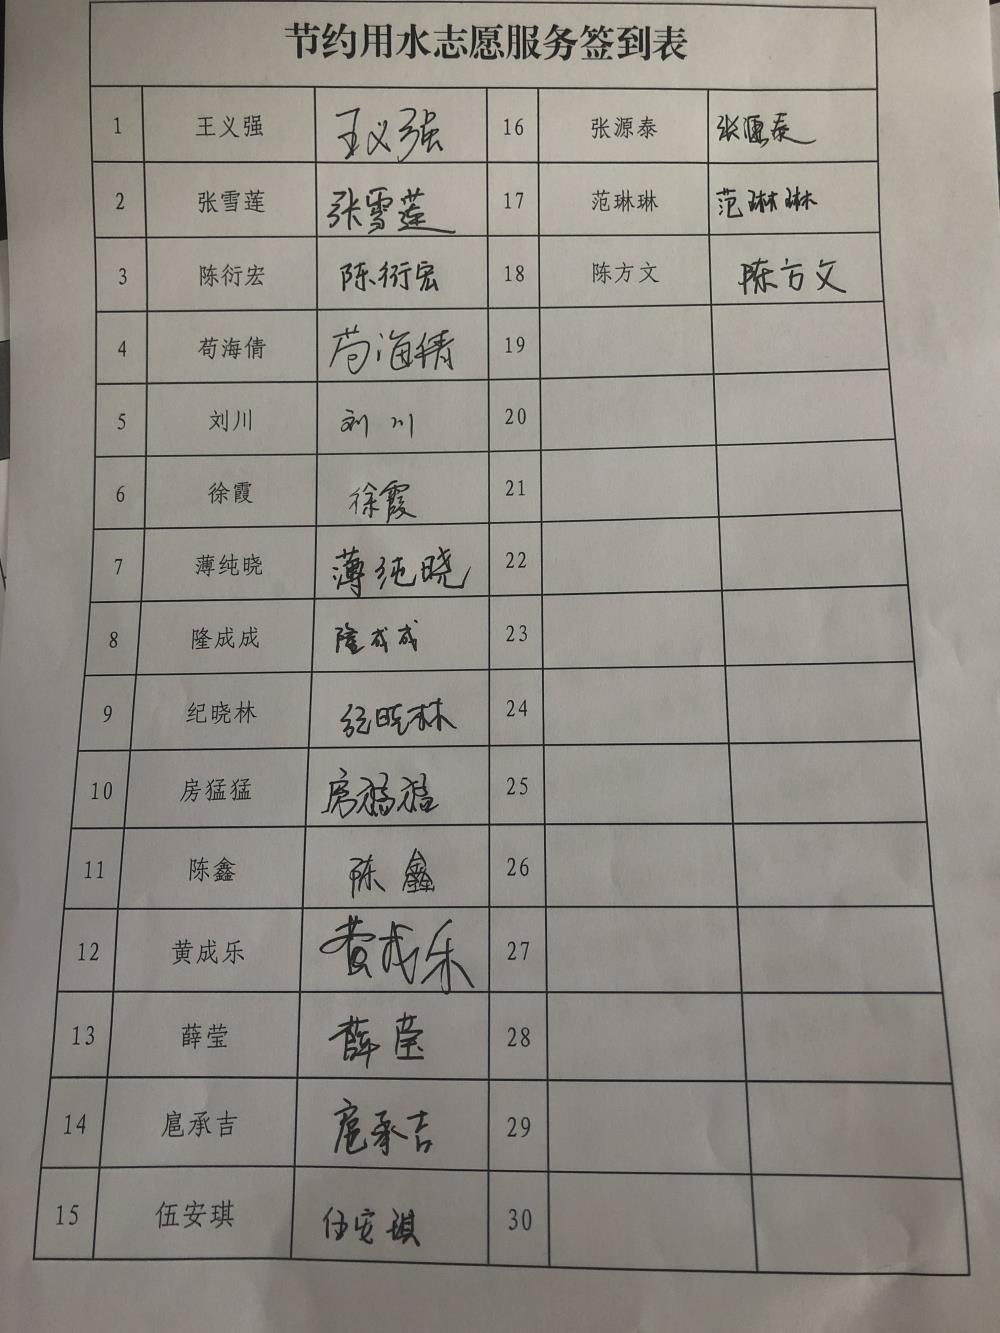 节约用水志愿服务签到表
1 王义强 王义强 16 张源泰 张源泰
2 张雪莲 张雪莲 17 范琳琳 范琳琳
3 陈衍宏 陈衍宏 18 陈方文 陈方文
4 苟海倩 苟海倩 19
5 刘川 刘川 20
6 徐霞 徐霞 21
7 薄纯晓 薄纯晓 22
8 隆成成 隆成成 23
9 纪晓林 纪晓林 24
10 房猛猛 房猛猛 25
11 陈鑫 陈鑫 26
12 黄成乐 黄成乐 27
13 薛莹 薛莹 28
14 扈承吉 扈承吉 29
15 伍安琪 伍安琪 30